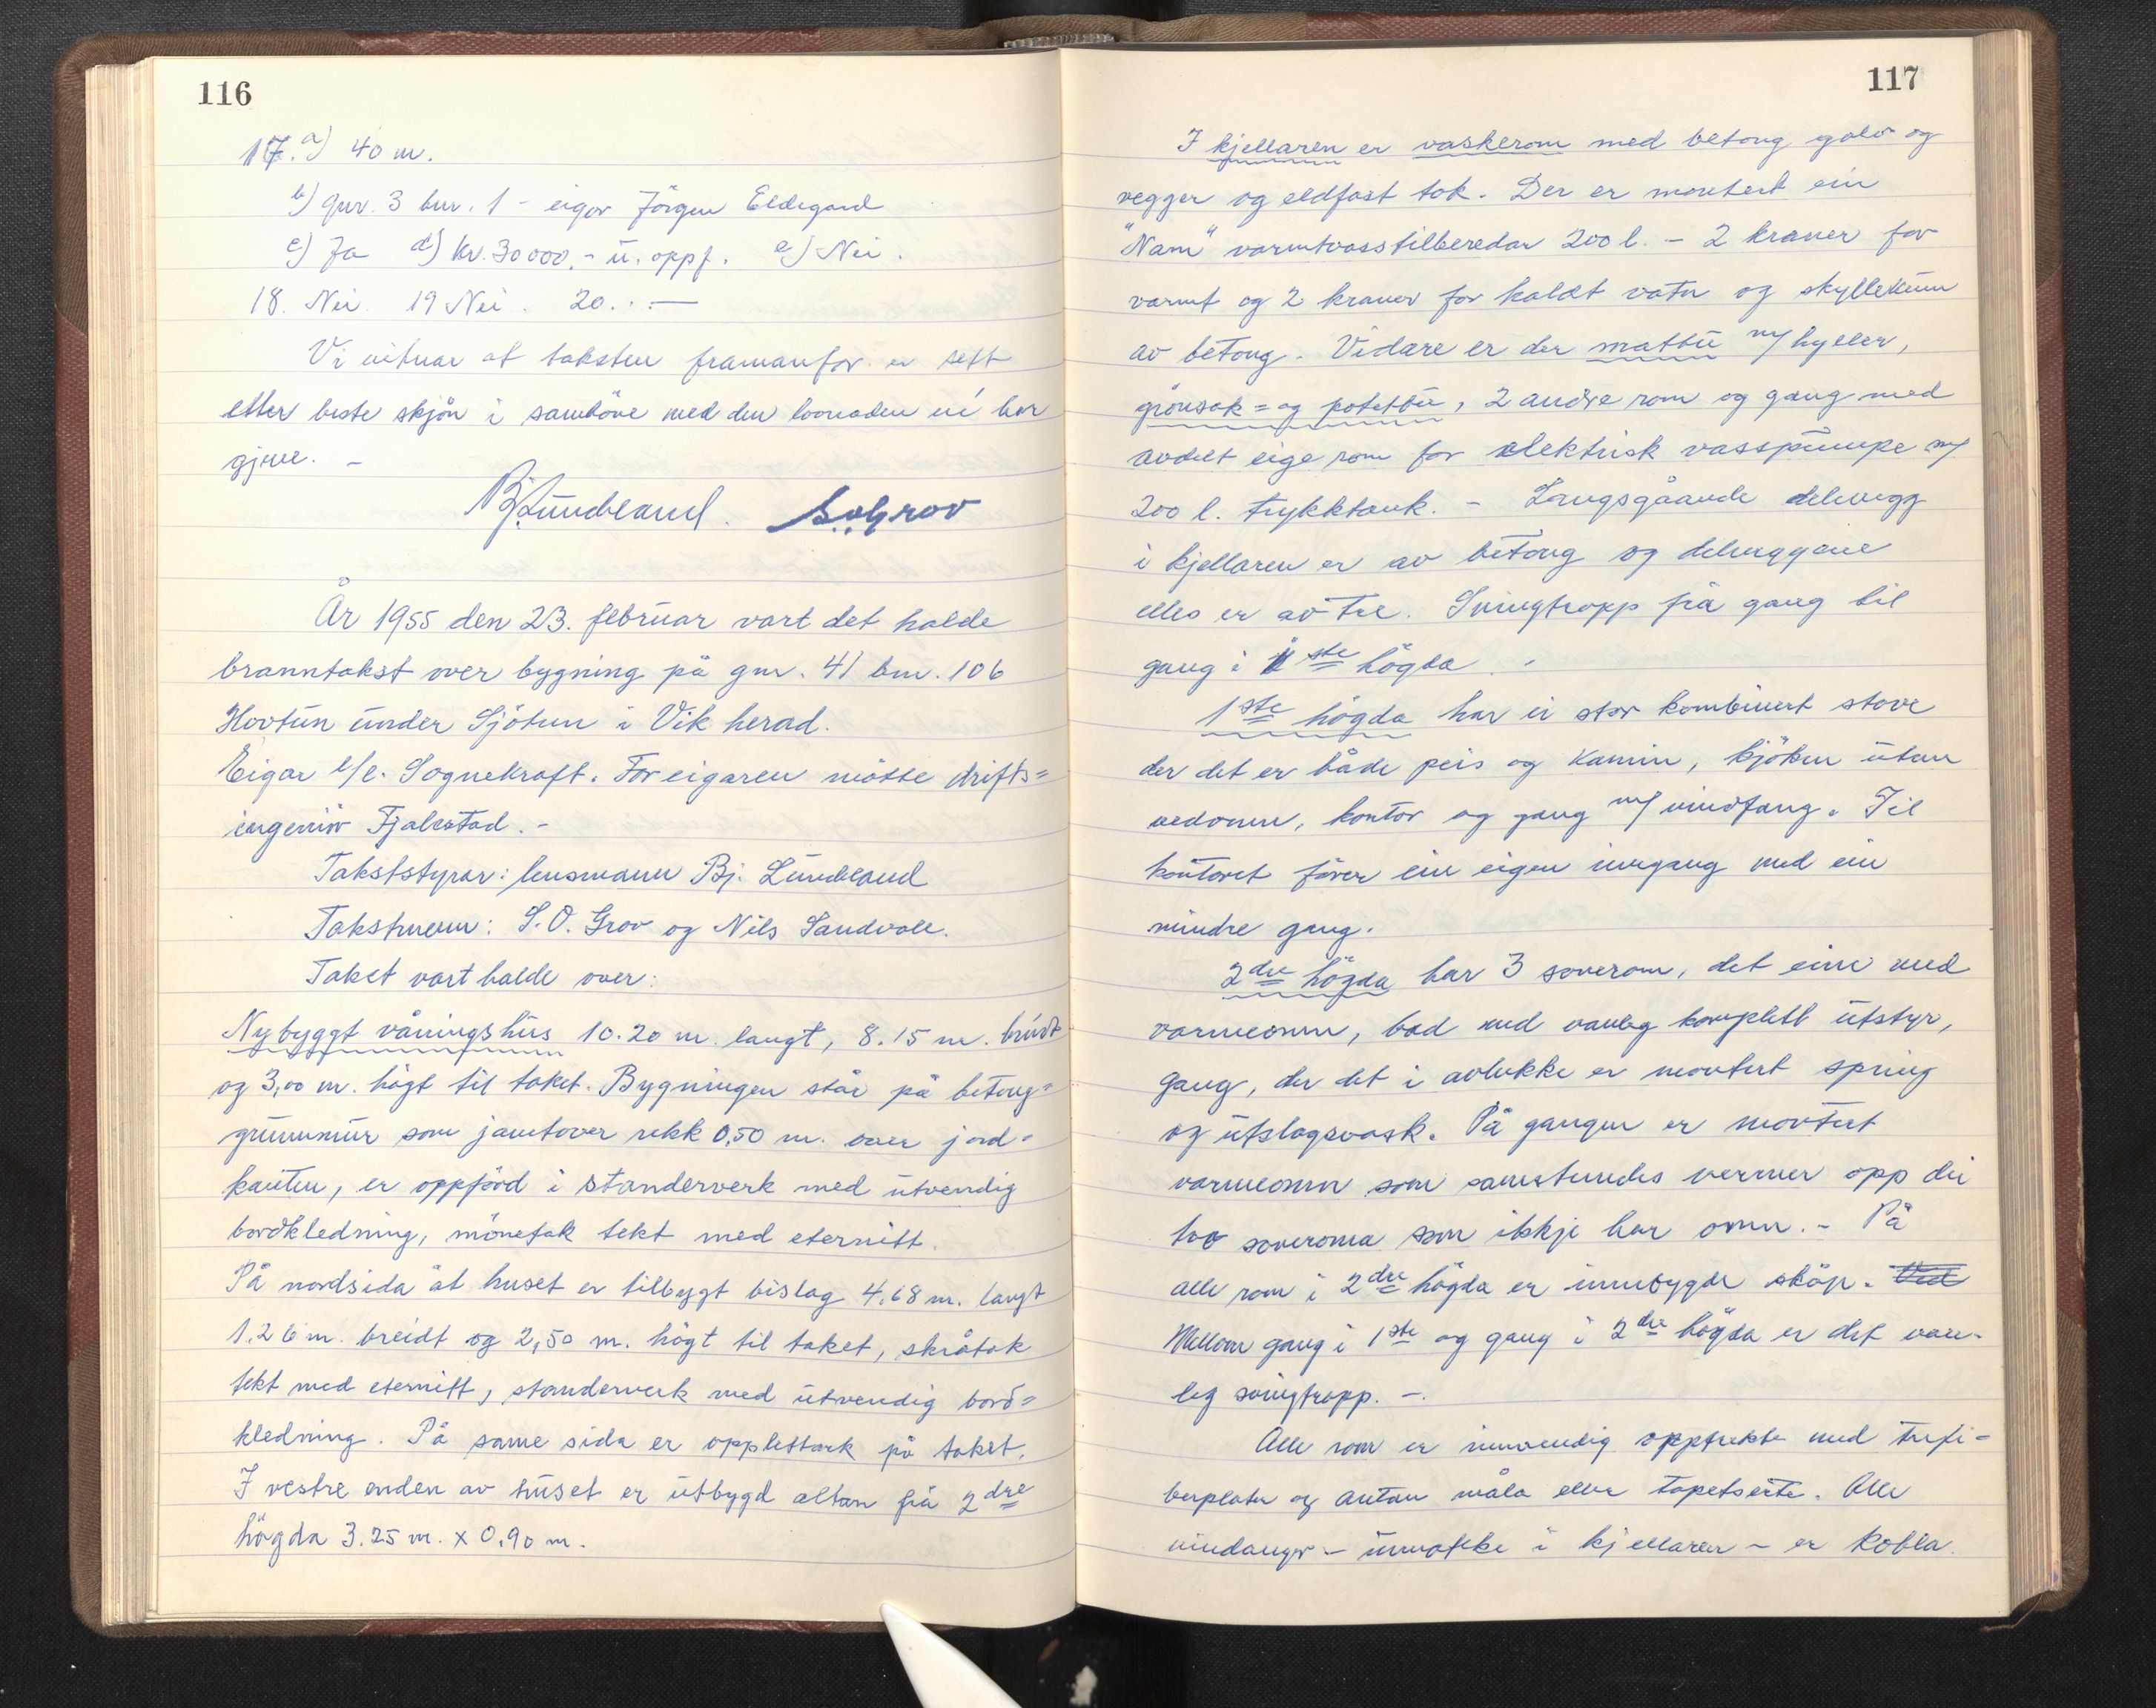 116
17. a) 40 m.
b) gnr. 3 bnr. 1 - eigar Jörgen Eldegard
c) Ja d) kr. 30000,- u. oppf. e) Nei.
18. Nei. 19 Nei. 20. : —
Vi vitnar at taksten framanfor er sett
etter beste skjön i samhöve med den lovnaden vi har
gjeve. –
Bj. Lundeland. S. O. Grov
År 1955 den 23. februar vart det halde
branntakst over bygning på gnr. 41 bnr. 106
Hovtun under Sjötun i Vik herad.
Eigar l/l. Sognekraft. For eigaren mötte drifts=
ingeniör Fjalestad. -
Takststyrar: lensmann Bj. Lundeland
Takstmenn: S. O. Grov og Nils Sandvoll.
Takst vart halde over:
Nybyggt våningshus 10.20 m. langt, 8.15 m. breidt
og 3,00 m. högt til taket. Bygningen står på betong=
grunnmur som jamtover rekk 0,50 m. over jord=
kanten, er oppförd i standerverk med utvendig
bordkledning, mönetak tekt med eternitt.
På nordsida åt huset er tilbygt bislag 4,68 m. langt
1.26 m. breidt og 2,50 m. högt til taket, skråtak
tekt med eternitt, standerverk med utvendig bord=
kledning. På same sida er opplettark på taket.
I vestre enden av huset er utbygd altan frå 2dre
högda 3.25 m. x 0.90 m.
117
I kjellaren er vaskerom med betong golv og
vegger og eldfast tak. Der er montert ein
"Nam" varmtvasstilberedar 200 l. – 2 kraner for
varmt og 2 kraner for kaldt vatn og skyllekum
av betong. Vidare er der matbu m/ hyller,
grönsak= og potetbu, 2 andre rom og gang med
avdelt eige rom for elektrisk vasspumpe m/
200 l. trykktank. – Langsgåande delevegg
i kjellaren er av betong og deleveggane
elles er av tre. Svingtropp frå gang til
gang i 1ste högda. -
1ste högda har ei stor kombinert stove
der det er både peis og kamin, kjöken utan
vedomn, kontor og gang m/ vindfang. Til
kontoret förer ein eigen inngang med ein
mindre gang.
2dre högda har 3 soverom, det eine med
varmeomn, bad med vanleg komplett utstyr,
gang, der det i avlukke er montert spring
og utslagsvask. På gangen er montert
varmeomn som samstundes vermer opp dei
two soveroma som ikkje har omn. – På
alle rom i 2dre högda er innebygde skåp. Ved
Mellom gang i 1ste og gang i 2dre högda er det van-
leg svingtropp. –.
Alle rom er innvendig opptrekte med trefi=
berplater og antan måla eller tapetserte. Alle
vindauger – unnateke i kjellaren – er kobla.